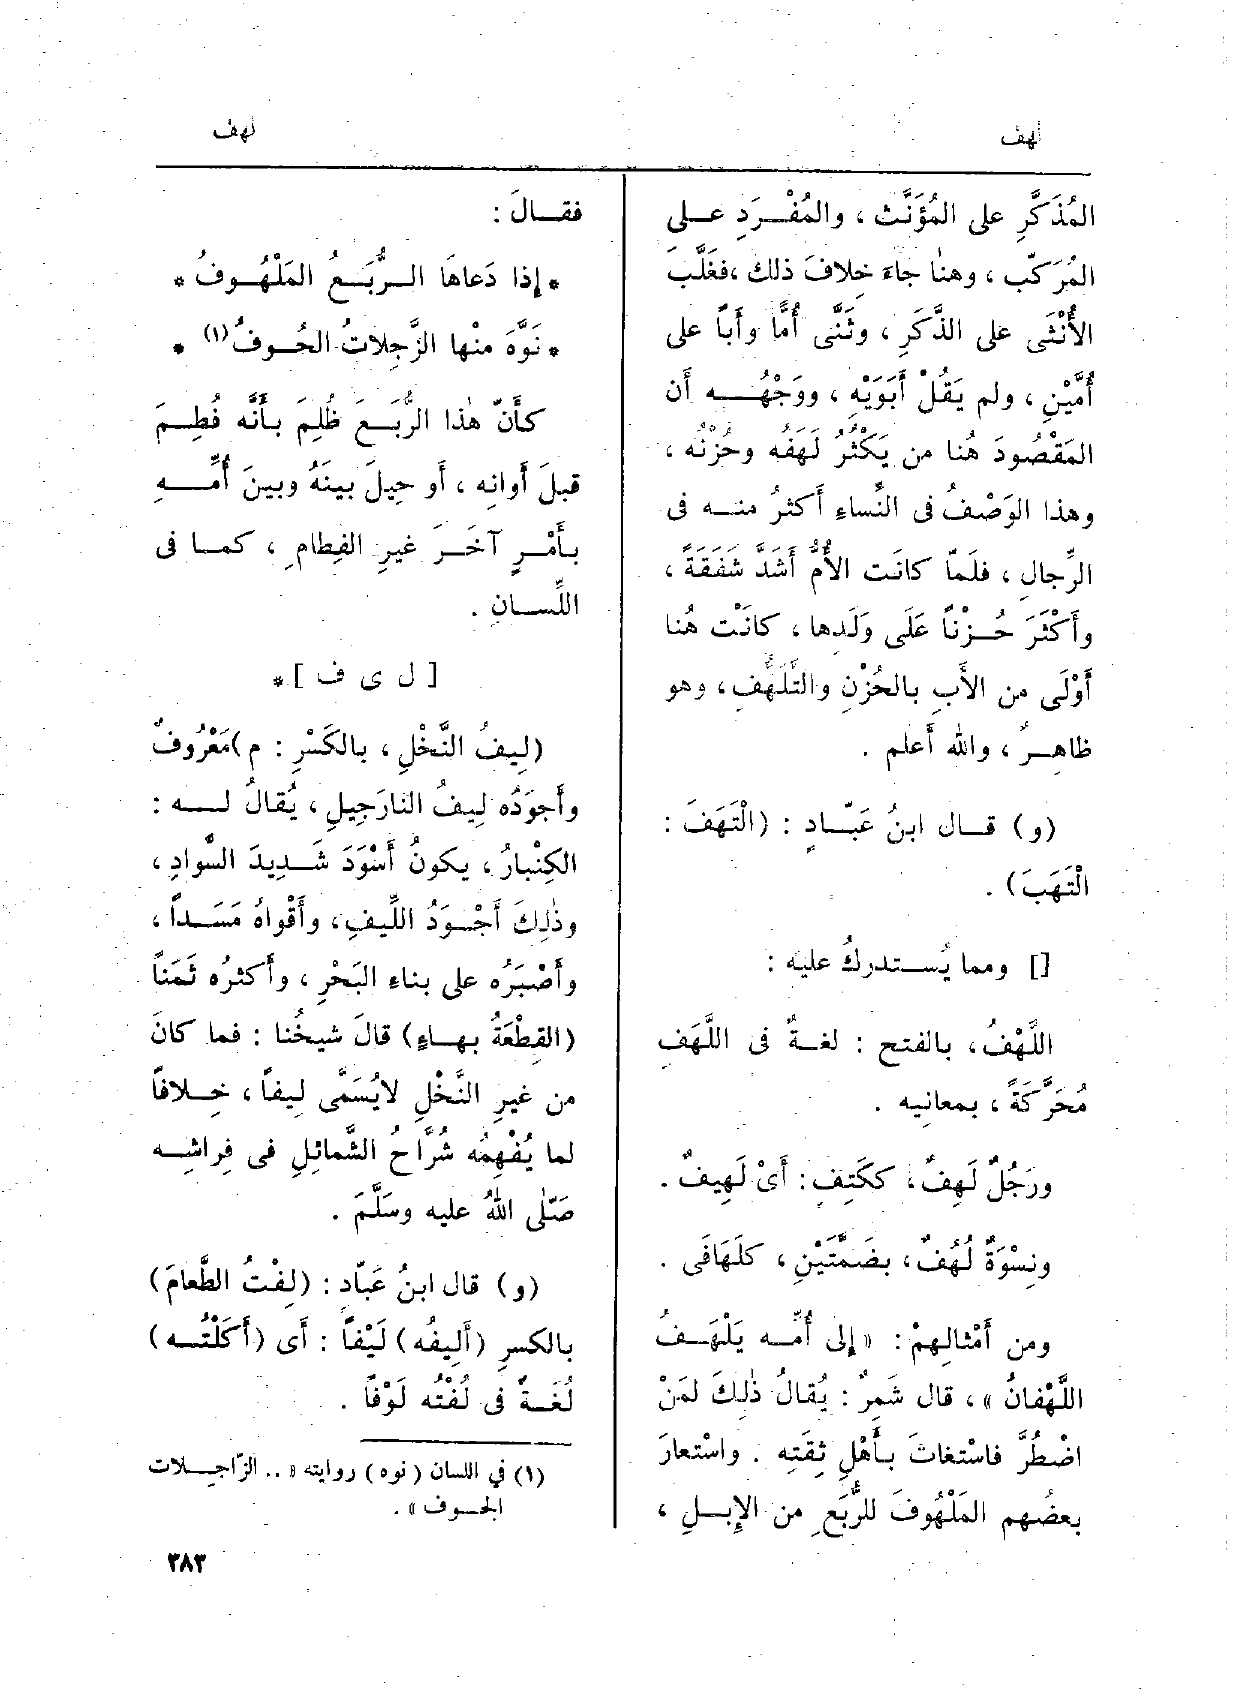 لهف
لهف
المُذَكَّرِ على المُؤَنَّث ، والمُفْـرَدِ عـلى
المُرَكَّبِ ، وهنا جاءَ خِلافَ ذلك ،فغَلَّبَ
الأُنْثَى على الذَّكَرِ ، وثَنَّى أُمًّا وأَباً على
أُمَّيْنِ ، ولم يَقُلْ أَبَوَيْهِ ، ووَجْهُــــه أَن
المَقْصُودَ هُنا من يَكْثُرُ لَهَفُه وحُزْنُه ،
وهذا الوَصْفُ فى النِّساءِ أَكثرُ منـــه فى
الرِّجالِ ، فلَمّا كانَت الأُمُّ أَشَدَّ شَفَقَةً ،
وأَكْثَرَ حُـــزْناً عَلَى وَلَدِها ، كانَتْ هُنا
أَوْلَى من الأَبِ بالحُزْنِ والتَّلَهُّفِ، وهو
ظاهِـــرٌ ، والله أَعلم .
(و) قـــال ابنُ عَبّـــادٍ : (الْتَهَفَ :
الْتَهَبَ) .
[] ومما يُســـتدركُ عليه :
اللَّهْفُ، بالفتح : لغـــةٌ فى اللَّهَفِ
مُحَرَّكَةً ، بمعانِيه .
ورَجُلٌ لَهِفٌ، ككَتِفٍ: أَىْ لَهِيفٌ .
ونِسْوَةٌ لُهُفٌ، بضَمَّتَيْنِ ، كلَهَافَى .
ومن أَمْثالِهِمْ : « إِلى أُمِّـــه يَلْهَـــفُ
اللَّهْفانُ »، قال شَمِرٌ : يُقالُ ذٰلِكَ لمَنْ
اضْطُرَّ فاستَغاثَ بـأَهْلِ ثِقَتِه . واسْتعارَ
بعضُهم المَلْهُوفَ للرُّبَعِ من الإِبـــلِ ،
فقـــالَ :
*إِذا دَعاهَا الـــرُّبَـــعُ المَلْهُـــوفُ *
*نَوَّهَ منْها الزَّجِلاتُ الحُـــوفُ(١) *
كأَنّ هٰذا الرُّبَـــعَ ظُلِمَ بـأَنَّه فُطِـــمَ
قبلَ أَوانِه ، أَو حِيلَ بينَهُ وبينَ أُمِّـــهِ
بـأَمْـــرٍ آخَـــرَ غيرِ الفِطامِ ، كمـــا فى
اللِّســـانِ .
[ ل ى ف ]*
(لِيفُ النَّخْلِ ، بالكَسْرِ : م)مَعْرُوفٌ
وأَجوَدُه لِيفُ النارَجِيلِ ، يُقالُ لـــه :
الكِنْبارُ ، يكونُ أَسْوَدَ شَـــدِيدَ السَّوادِ ،
وذٰلِكَ أَجْـــوَدُ اللِّيفِ، وأَقْواهُ مَسَـــداً ،
وأَصْبَرُه على بناءِ البَحْرِ ، وأَكثرُه ثَمَناً
(القِطْعَةُ بهـــاءٍ) قالَ شيخُنا : فما كانَ
من غيرِ النَّخْلِ لايُسَمَّى لِيفاً ، خِـــلافاً
لما يُفْهِمُه شُرَّاحُ الشَّمائلِ فى فِراشِـــه
صَلّى اللهُ عليه وسَلَّمَ .
(و) قال ابنُ عَبّاد : (لِفْتُ الطَّعامَ)
بالكسرِ (أَلِيفُه) لَيْفاً : أَى (أَكَلْتُـــه)
لُغَـــةٌ فى لُفْتُه لَوْفاً .
(١) في اللسان (نوه) روايته « .. الزّاجِـــلات
الجُـــوف » .
٣٨٣